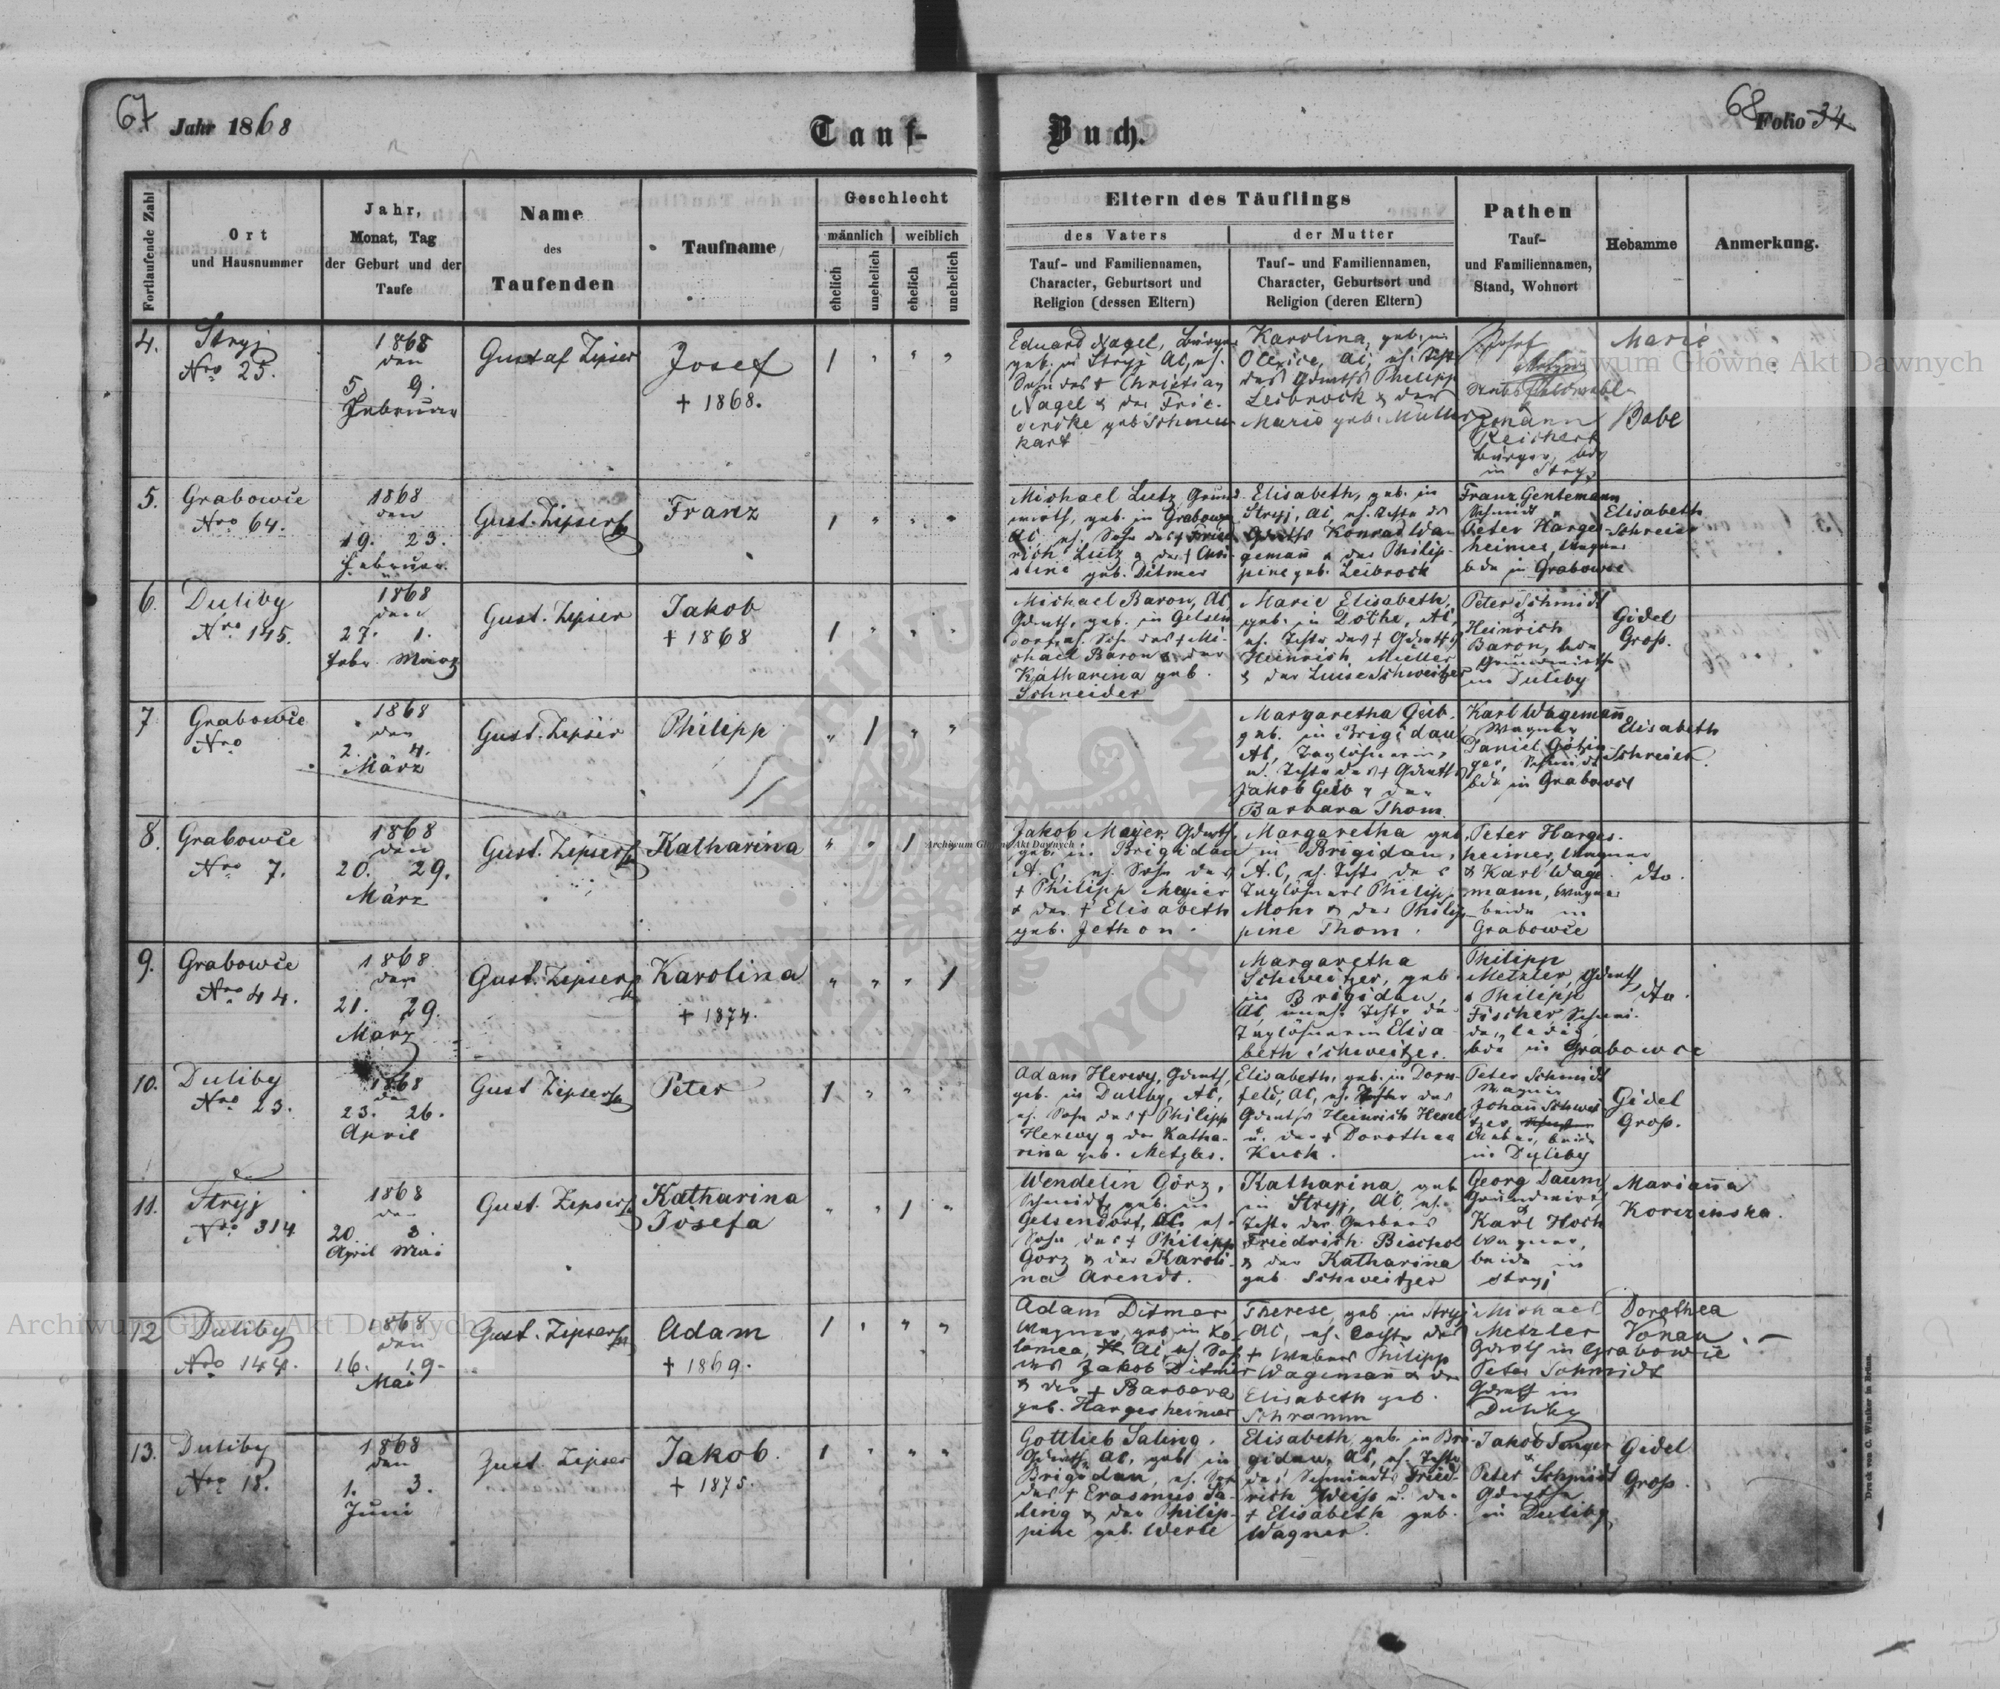 67 Jahr 1868
Tauf-
Buch.
68 Folio 34
Fortlaufende Zahl
Ort
und Hausnummer
Jahr,
Monat, Tag
der Geburt und der
Taufe
Name
des
Taufenden
Taufname
Geschlecht
männlich
weiblich
ehelich
unehelich
ehelich
unehelich
Eltern des Täuflings
des Vaters
Tauf- und Familiennamen,
Character, Geburtsort und
Religion (dessen Eltern)
der Mutter
Tauf- und Familiennamen,
Character, Geburtsort und
Religion (deren Eltern)
Pathen
Tauf-
und Familiennamen,
Stand, Wohnort
Hebamme
Anmerkung.
4.
Stryj
Nro 25.
1868
den
5. 9.
Februar
Gustaf Zipser
Josef
† 1868.
1 " " "
Eduard Nagel, Bürger
geb. in Stryj AC, eh.
Sohn des † Christian
Nagel & der Frie-
dericke geb.
kart
Karolina, geb. in
AC, eh. Tcht
des Gdwths Philipp
Leibrock & der
Marie geb. Müller
Josef
Reichert
Bürger, bde
in Stryj
Marie
Bobe
5.
Grabowce
Nro 64.
1868
den
19. 23.
Februar.
Gust. Zipser
Franz
1 " " "
Michael Lutz Grund-
wirth, geb. in Grabowce
AC, eh. Sohn des † Fried-
rich Lutz & der † Chri-
stine geb. Ditmer
Elisabeth, geb. in
Stryj, AC, eh. Tchtr ds
Gdwths Konrad Wa-
gemañ & der Philip-
pine geb. Leibrock
Franz Gentemann
Schmidt &
Peter Harges-
heimer, Wagner
bde in Grabowce
Elisabeth
Schreier
6.
Duliby
Nro 145.
1868
den
27. 1.
Febr. März
Gust. Zipser
Jakob
† 1868
1 " " "
Michael Baron, AC,
Gdwth, geb. in Gelsen-
dorf, eh. Sohn des † Mi-
chael Baron & der
Katharina geb.
Schneider
Marie Elisabeth,
geb. in AC,
eh. Tchtr des † Gdwths
Heinrich Müller
& der Luise Schweitzer
Peter Schmidt
&
Heinrich
Baron, bde
Grundwirthe
in Duliby
Gidel
Groß.
7
Grabowce
Nro
1868
den
2. 4.
März
Gust. Zipser
Philipp
" 1 " "
Margaretha Geib
geb. in Brigidau
AC, Taglöhnerin,
u. Tchtr des † Gdwths
Jakob Geib & der
Barbara Thom.
Karl Wagemañ
Wagner
Daniel
Schmidt
bde in Grabowce
Elisabeth
Schreier.
8.
Grabowce
Nro 7.
1868
den
20. 29.
März
Gust. Zipser
Katharina
" " 1 "
Jakob Mayer, Gdwth,
geb. in Brigidau
A.C, eh. Sohn des
† Philipp Meyer
& der † Elisabeth
geb. Jethon.
Margaretha geb.
in Brigidau,
A.C, eh. Tchtr des
Taglöhners Philipp
Mohr & der Philip-
pine Thom.
Peter Harges-
heimer, Wagner
& Karl Wage-
mann, Wagner
beide in
Grabowce
dto.
9.
Grabowce
Nro 44.
1868
den
21. 29.
März
Gust. Zipser
Karolina
† 1874.
" " " 1
Margaretha
Schweitzer, geb.
in Brigidau,
AC, uneh. Tchtr der
Taglöhnerin Elisa-
beth Schweitzer.
Philipp
Metzler, Gdwth
& Philipp
Fischer Schnei-
der, ledig
bde in Grabowce
dto.
10.
Duliby
Nro 23.
1868
den
23. 26.
April
Gust Zipser
Peter
1 " " "
Adam Herwy, Gdwth,
geb. in Duliby, AC,
eh. Sohn des † Philipp
Herwy & der Katha-
rina geb. Metzler.
Elisabeth, geb. in Dorn-
feld, AC, eh. Tochter des
Gdwths Heinrich
u. der † Dorothea
Kuck.
Peter Schmidt
Wagner
Johañ Schwei-
tzer,
Weber, beide
in Duliby
Gidel
Groß.
11.
Stryj
Nro 314
1868
den
20. 3.
April Mai
Gust. Zipser
Katharina
Josefa
" " 1 "
Wendelin Görz,
Schmidt, geb. in
Gelsendorf, AC, eh.
Sohn des † Philipp
Görz & der Karoli-
na Arendt.
Katharina geb.
in Stryj, AC, eh.
Tchtr des Gerbers
Friedrich Bischof
& der Katharina
geb. Schweitzer
Georg Daum
Grundwirth
Karl Hoch
Wagner,
beide in
Stryj
Mariaña
12
Duliby
Nro 144.
1868
den
16. 19.
Mai
Gust. Zipser
Adam
† 1869.
1 " " "
Adam Ditmer
Wagner, geb. in Ko-
lomea, AC, eh. Sohn
des Jakob Ditmer
& der † Barbara
geb. Hargesheimer
Therese, geb. in Stryj
AC, eh. Tochtr des
† Webers Philipp
Wagemañ & der
Elisabeth geb.
Schramm
Michael
Metzler
Gdwth in Grabowce
Peter Schmidt
Gdwth in
Duliby
Dorothea
Vonau.
13.
Duliby
Nro 18.
1868
den
1. 3.
Juni
Gust. Zipser
Jakob.
† 1875.
1 " " "
Gottlieb Saling,
Gdwth, AC, geb. in
Brigidau, eh. Sohn
des † Erasmus Sa-
ling & der Philip-
pine geb. Werle
Elisabeth geb. in Bri-
gidau, AC, eh. Tchtr
des Schmiedts Fried-
rich Weiss u. der
† Elisabeth geb.
Wagner.
Jakob
&
Peter Schmidt
Gdwthe
in Duliby
Gidel
Groß.
Druck von C. Winiker in Brünn.
Archiwum Główne Akt Dawnych
Archiwum Główne Akt Dawnych
Archiwum Główne Akt Dawnych